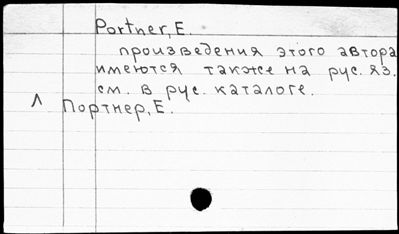 Portner, E.
произведения этого автора
имеются также на рус. яз.
см. в рус. каталоге.
^ Портнер, Е.